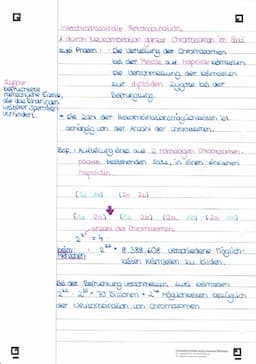 Interchromosomale Rekombination
→ durch Neukombination ganzer Chromosomen im Bsd
zwei Phasen: · Die Verteilung der Chromosomen
bei der Meiose auf haploide Keimzellen
· Die Verschmelzung der Keimzellen
zur diploiden Zygote bei der
Befruchtung.
befruchtete
menschliche Eizelle,
die das Eindringen
weiterer Spermien
verhindert.
→ Die Zahl der Rekombinationsmöglichkeiten ist
abhängig von der Anzahl der Chromosomen.
Bsp.: Aufteilung eines aus 2 homologen Chromosomen-
paaren bestehenden Satz, in einen einfachen
haploiden
(1a 1b) (2a 2b)
(1a 2a) (1a 2b) (1b 2a) (1b 2b)
Anzahl der Chromosomen
= 4
beim Menschen: 2²³ = 8.388.608 verschiedene Möglich-
keiten Keimzellen zu bilden.
Bei der Befruchtung verschmelzen zwei Keimzellen:
2²³ · 2²³ = 70 Billionen = 2⁴⁶ Möglichkeiten bezüglich
der Neukombination von Chromosomen